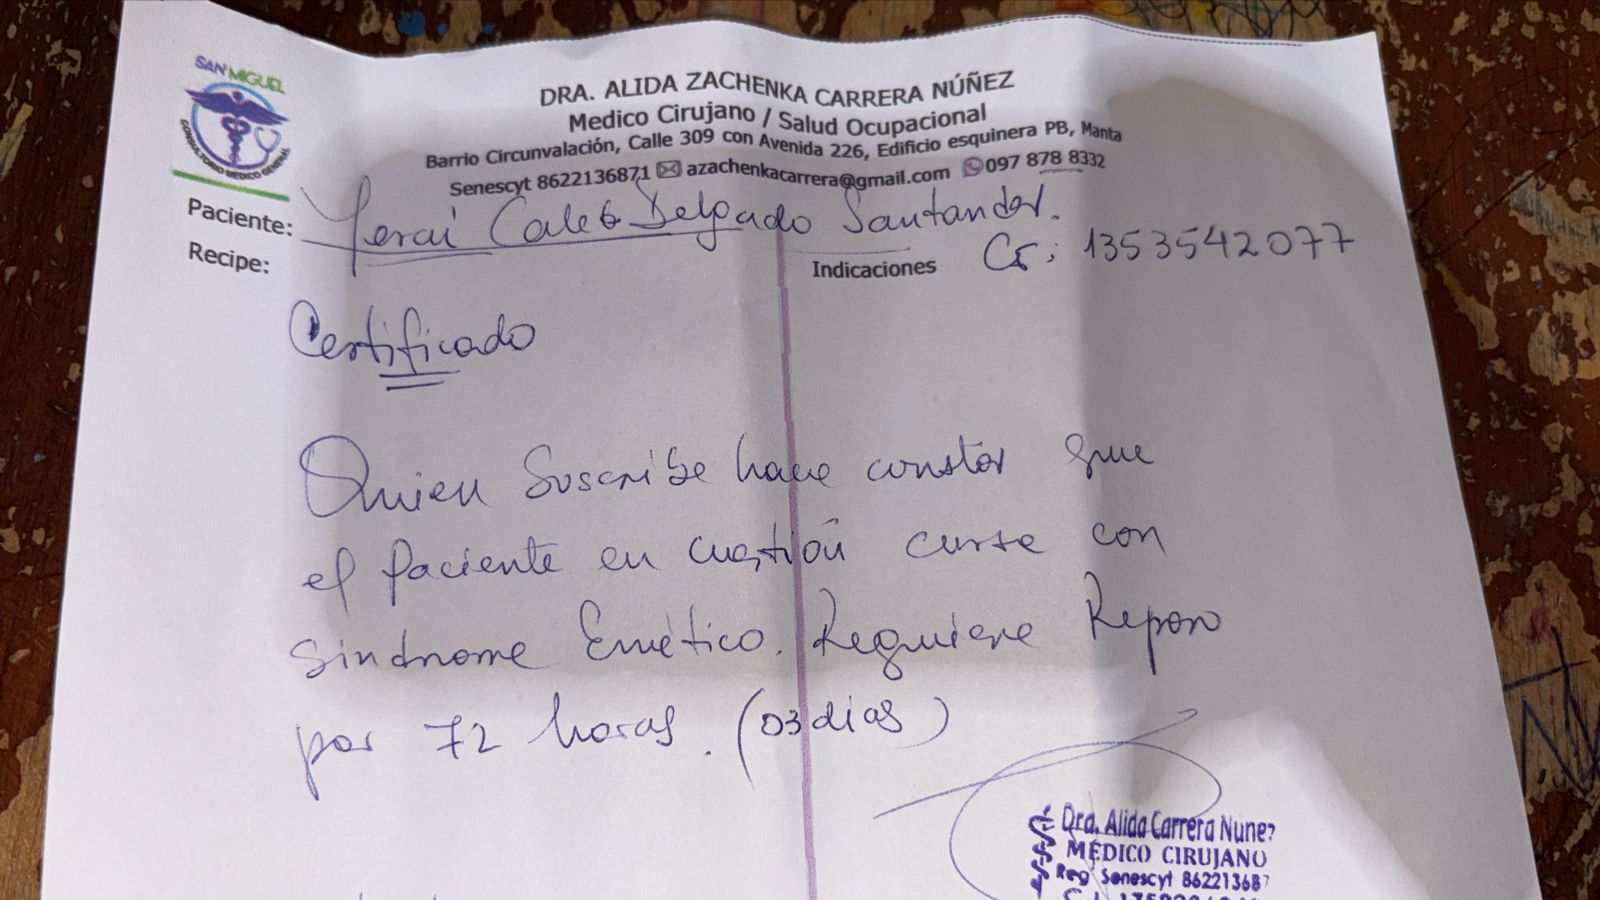 SAN MIGUEL
CONSULTORIO MÉDICO GENERAL
DRA. ALIDA ZACHENKA CARRERA NÚÑEZ
Medico Cirujano / Salud Ocupacional
Barrio Circunvalación, Calle 309 con Avenida 226, Edificio esquinera PB, Manta
Senescyt 8622136871 azachenkacarrera@gmail.com 097 878 8332
Paciente: Yerai Caleb Delgado Santander.
Recipe:
Indicaciones CI: 1353542077
Certificado
Quien Suscribe hace constar que
el paciente en cuestión cursa con
sindrome Emético. Requiere Reposo
por 72 horas. (03 dias)
Dra. Alida Carrera Nuñez
MÉDICO CIRUJANO
Reg Senescyt 862213687